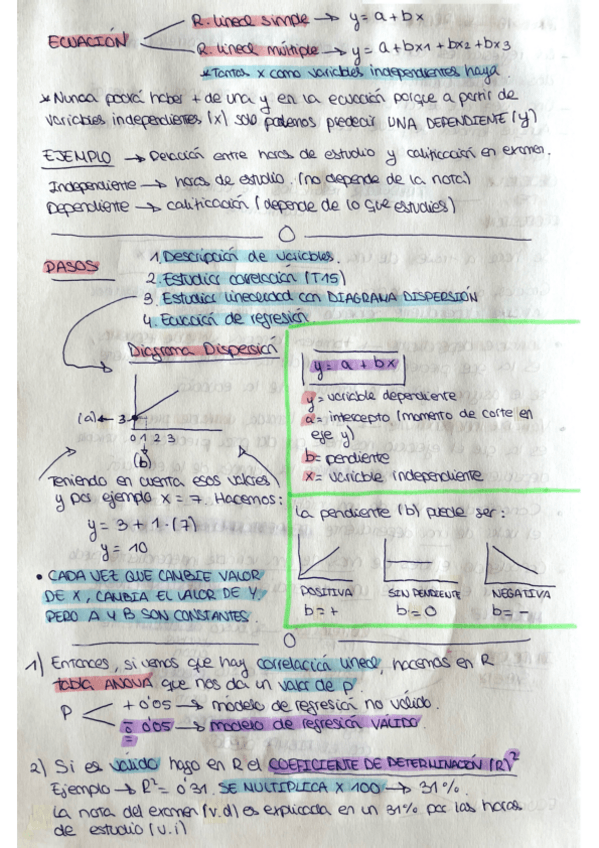 ECUACIÓN
R. lineal simple → y = a + bx
R. lineal múltiple → y = a + bx1 + bx2 + bx3
* Tantas x como variables independientes haya.
* Nunca podrá haber + de una y en la ecuación porque a partir de
variables independientes (x) solo podemos predecir UNA DEPENDIENTE (y)
EJEMPLO → Relación entre horas de estudio y calificación en examen.
Independiente → horas de estudio. (no depende de la nota)
Dependiente → calificación (depende de lo que estudies)
PASOS
1. Descripción de variables.
2. Estudiar correlación (T15)
3. Estudiar linealidad con DIAGRAMA DISPERSIÓN
4. Ecuación de regresión
Diagrama Dispersión
(a) ← 3
0 1 2 3
(b)
Teniendo en cuenta esos valores
y por ejemplo x = 7. Hacemos:
y = 3 + 1 · (7)
y = 10
• CADA VEZ QUE CAMBIE VALOR
DE X, CAMBIA EL VALOR DE Y,
PERO A Y B SON CONSTANTES.
y = a + bx
y = variable dependiente
a = intercepto (momento de corte en
eje y)
b = pendiente
x = variable independiente
La pendiente (b) puede ser:
POSITIVA SIN PENDIENTE NEGATIVA
b = + b = 0 b = -
1) Entonces, si vemos que hay correlación lineal, hacemos en R
tabla ANOVA que nos da un valor de p.
P
+ 0'05 → modelo de regresión no válido.
- 0'05 → modelo de regresión VALIDO.
2) Si es válido hago en R el COEFICIENTE DE DETERMINACIÓN (R)²
Ejemplo → R² = 0'31. SE MULTIPLICA X 100 → 31%.
La nota del examen (v.d) es explicada en un 31% por las horas
de estudio (v.i)